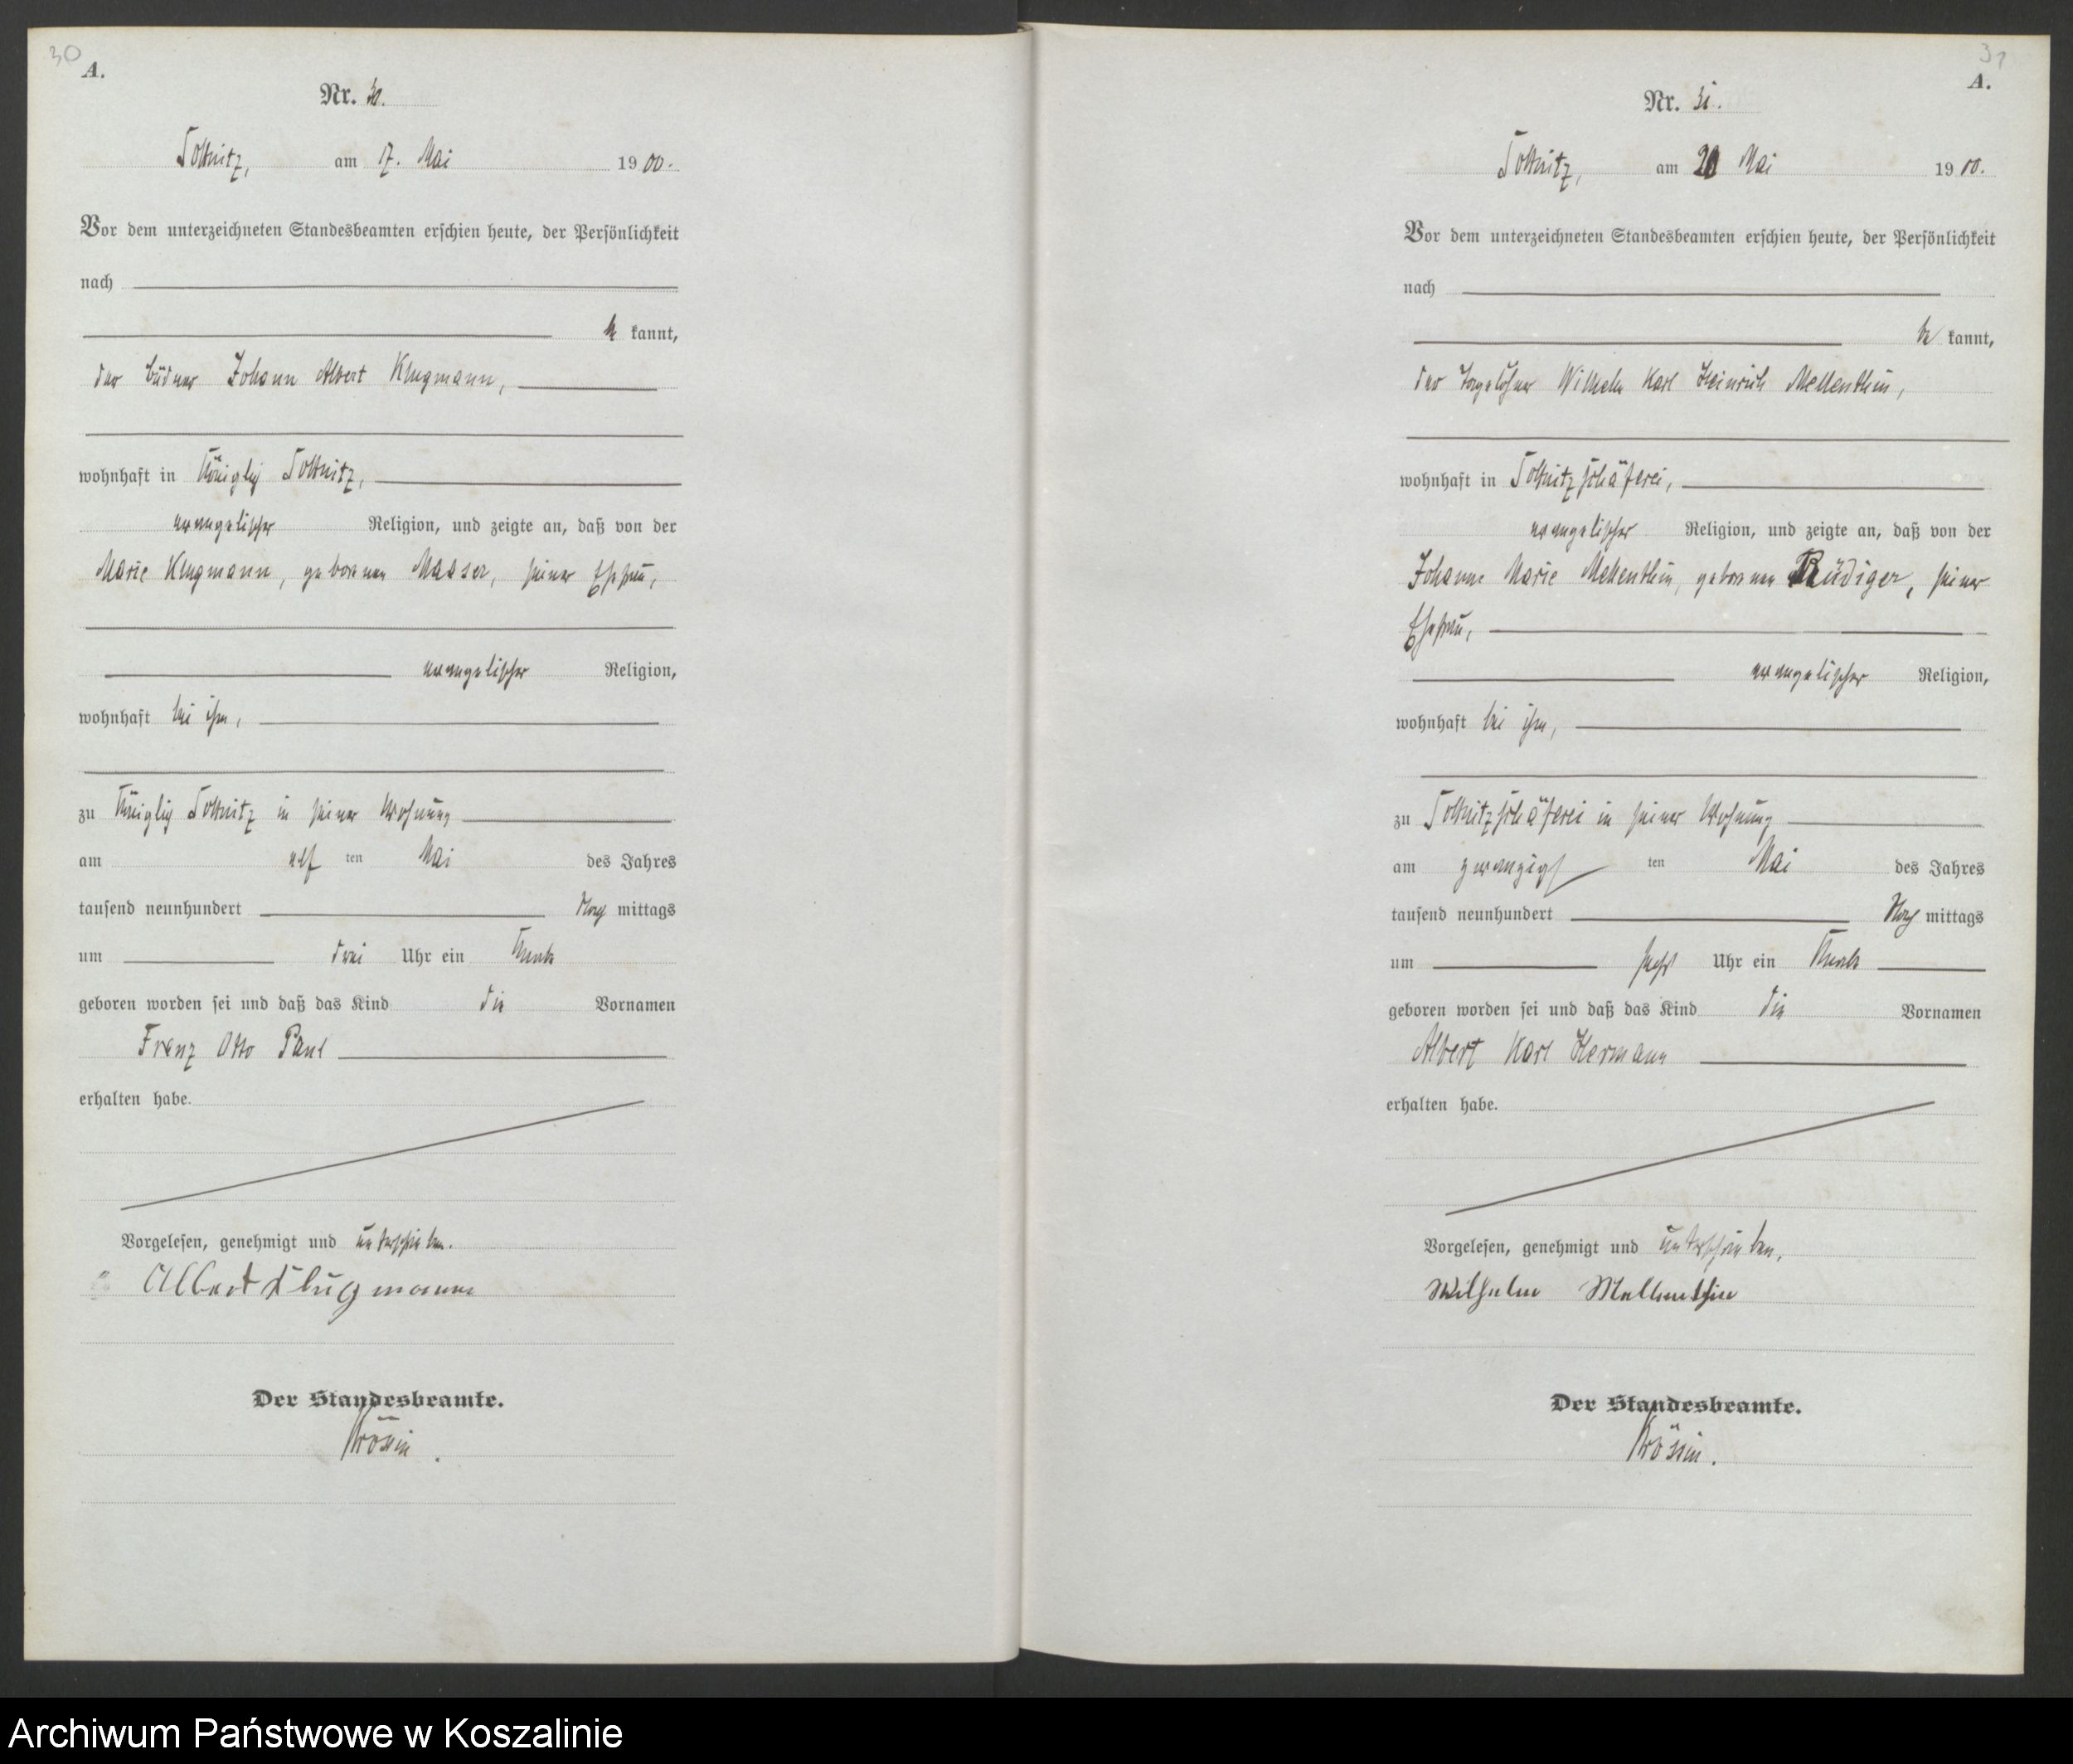 30
A.
Nr. 30.
Soltnitz, am 17. Mai 1900.
Vor dem unterzeichneten Standesbeamten erschien heute, der Persönlichkeit
nach
be kannt,
der Büdner Johann Albert Klugmann,
wohnhaft in Königlich Soltnitz,
evangelischer Religion, und zeigte an, daß von der
Marie Klugmann, geborenen Masser, seiner Ehefrau,
evangelischer Religion,
wohnhaft bei ihm,
zu Königlich Soltnitz in seiner Wohnung
am elf ten Mai des Jahres
tausend neunhundert Nach mittags
um drei Uhr ein Knabe
geboren worden sei und daß das Kind die Vornamen
Franz Otto Paul
erhalten habe.
Vorgelesen, genehmigt und unterschrieben.
Albert Klugmann
Der Standesbeamte.
Krössin.
31
A.
Nr. 31.
Soltnitz, am Mai 1900.
Vor dem unterzeichneten Standesbeamten erschien heute, der Persönlichkeit
nach
be kannt,
der Tagelöhner Wilhelm Karl Heinrich Mellenthin,
wohnhaft in Soltnitzschäferei,
evangelischer Religion, und zeigte an, daß von der
Johanne Marie Mellenthin, geborenen Rüdiger, seiner
Ehefrau,
evangelischer Religion,
wohnhaft bei ihm,
zu Soltnitzschäferei in seiner Wohnung
am zwanzigs ten Mai des Jahres
tausend neunhundert Nach mittags
um sechs Uhr ein Knabe
geboren worden sei und daß das Kind die Vornamen
Albert Karl Hermann
erhalten habe.
Vorgelesen, genehmigt und unterschrieben.
Wilhelm Mellenthin
Der Standesbeamte.
Krössin.
Archiwum Państwowe w Koszalinie